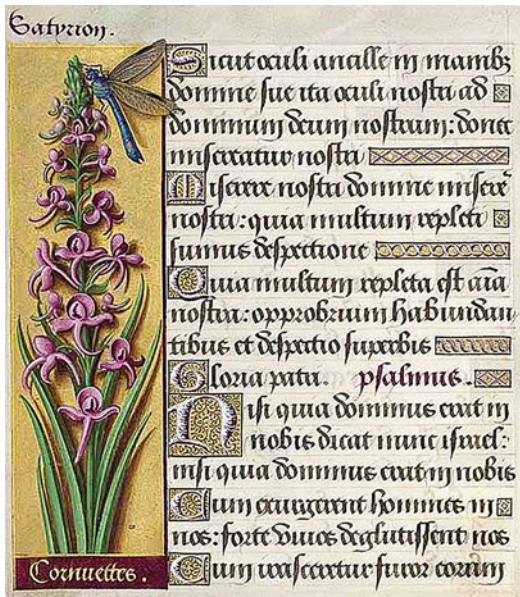 Satyrion.
Sicut oculi ancille in manibꝫ
domine sue ita oculi nostri ad
dominum deum nostrum: donec
misereatur nostri
Miserere nostri domine miserē
nostri: quia multum repleti
sumus despectione
Quia multum repleta est aīa
nostra: opprobrium habundan
tibus et despectio superbis
Gloria patri. psalmus.
Nisi quia dominus erat in
nobis dicat nunc israel:
nisi quia dominus erat in nobis
Cum exurgerent homines in
nos: forte vivos deglutissent nos
Cum irasceretur furor eorum
Cornuettes.